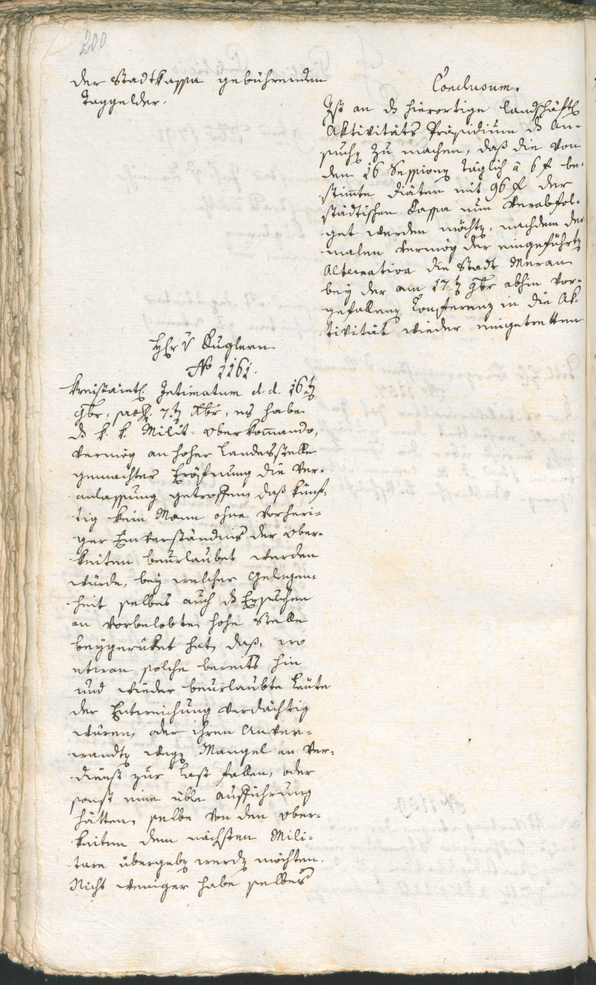 200
der Stadtkassa gebührenden
Taggelder.
Conclusum.
Ist an ds hierortige landschäftl.
Aktivitäts Präsidium ds An-
suchen zu machen, daß die von
den 16 Sessionen täglich à 6 f be-
stimte Diäten mit 96 f der
städtischen Kassa nun verabfol-
get werden möchten, nachdem der
malen vermög der eingeführten
Alternativa die Stadt Meran
bey der am 17ten 9ber abhin vor-
gefallenen Conferenz in die Ak-
tivität wieder eingetretten
Hr v Kuglern
No 1161.
Kreisämtl. Intimatum d. d. 16ten
9br, 7ten Xbr, es habe
ds k. k. Milit. Oberkomando,
vermög an hoher Landesstelle
gemachter Eröfnung die Ver-
anlassung getroffen, daß künf-
tig kein Mann ohne vorheri-
ger Einverständnis der Ober-
keiten beurlaubet werden
würde, bey welcher Gelegen-
heit selbes auch ds Ersuchen
an vorbelobte hohe Stelle
beygerücket hat, daß, wo
etwan solche bereits hin
und wieder beurlaubte Leute
der Entweichung verdächtig
wären, oder ihren Anver-
wandten wegen Mangel an Ver-
dienst zur Last fallen, oder
sonst eine üble Aufführung
hätten, selbe von den Ober-
keiten dem nächsten Mili-
tare übergeben werden möchten.
Nicht weniger habe selbes